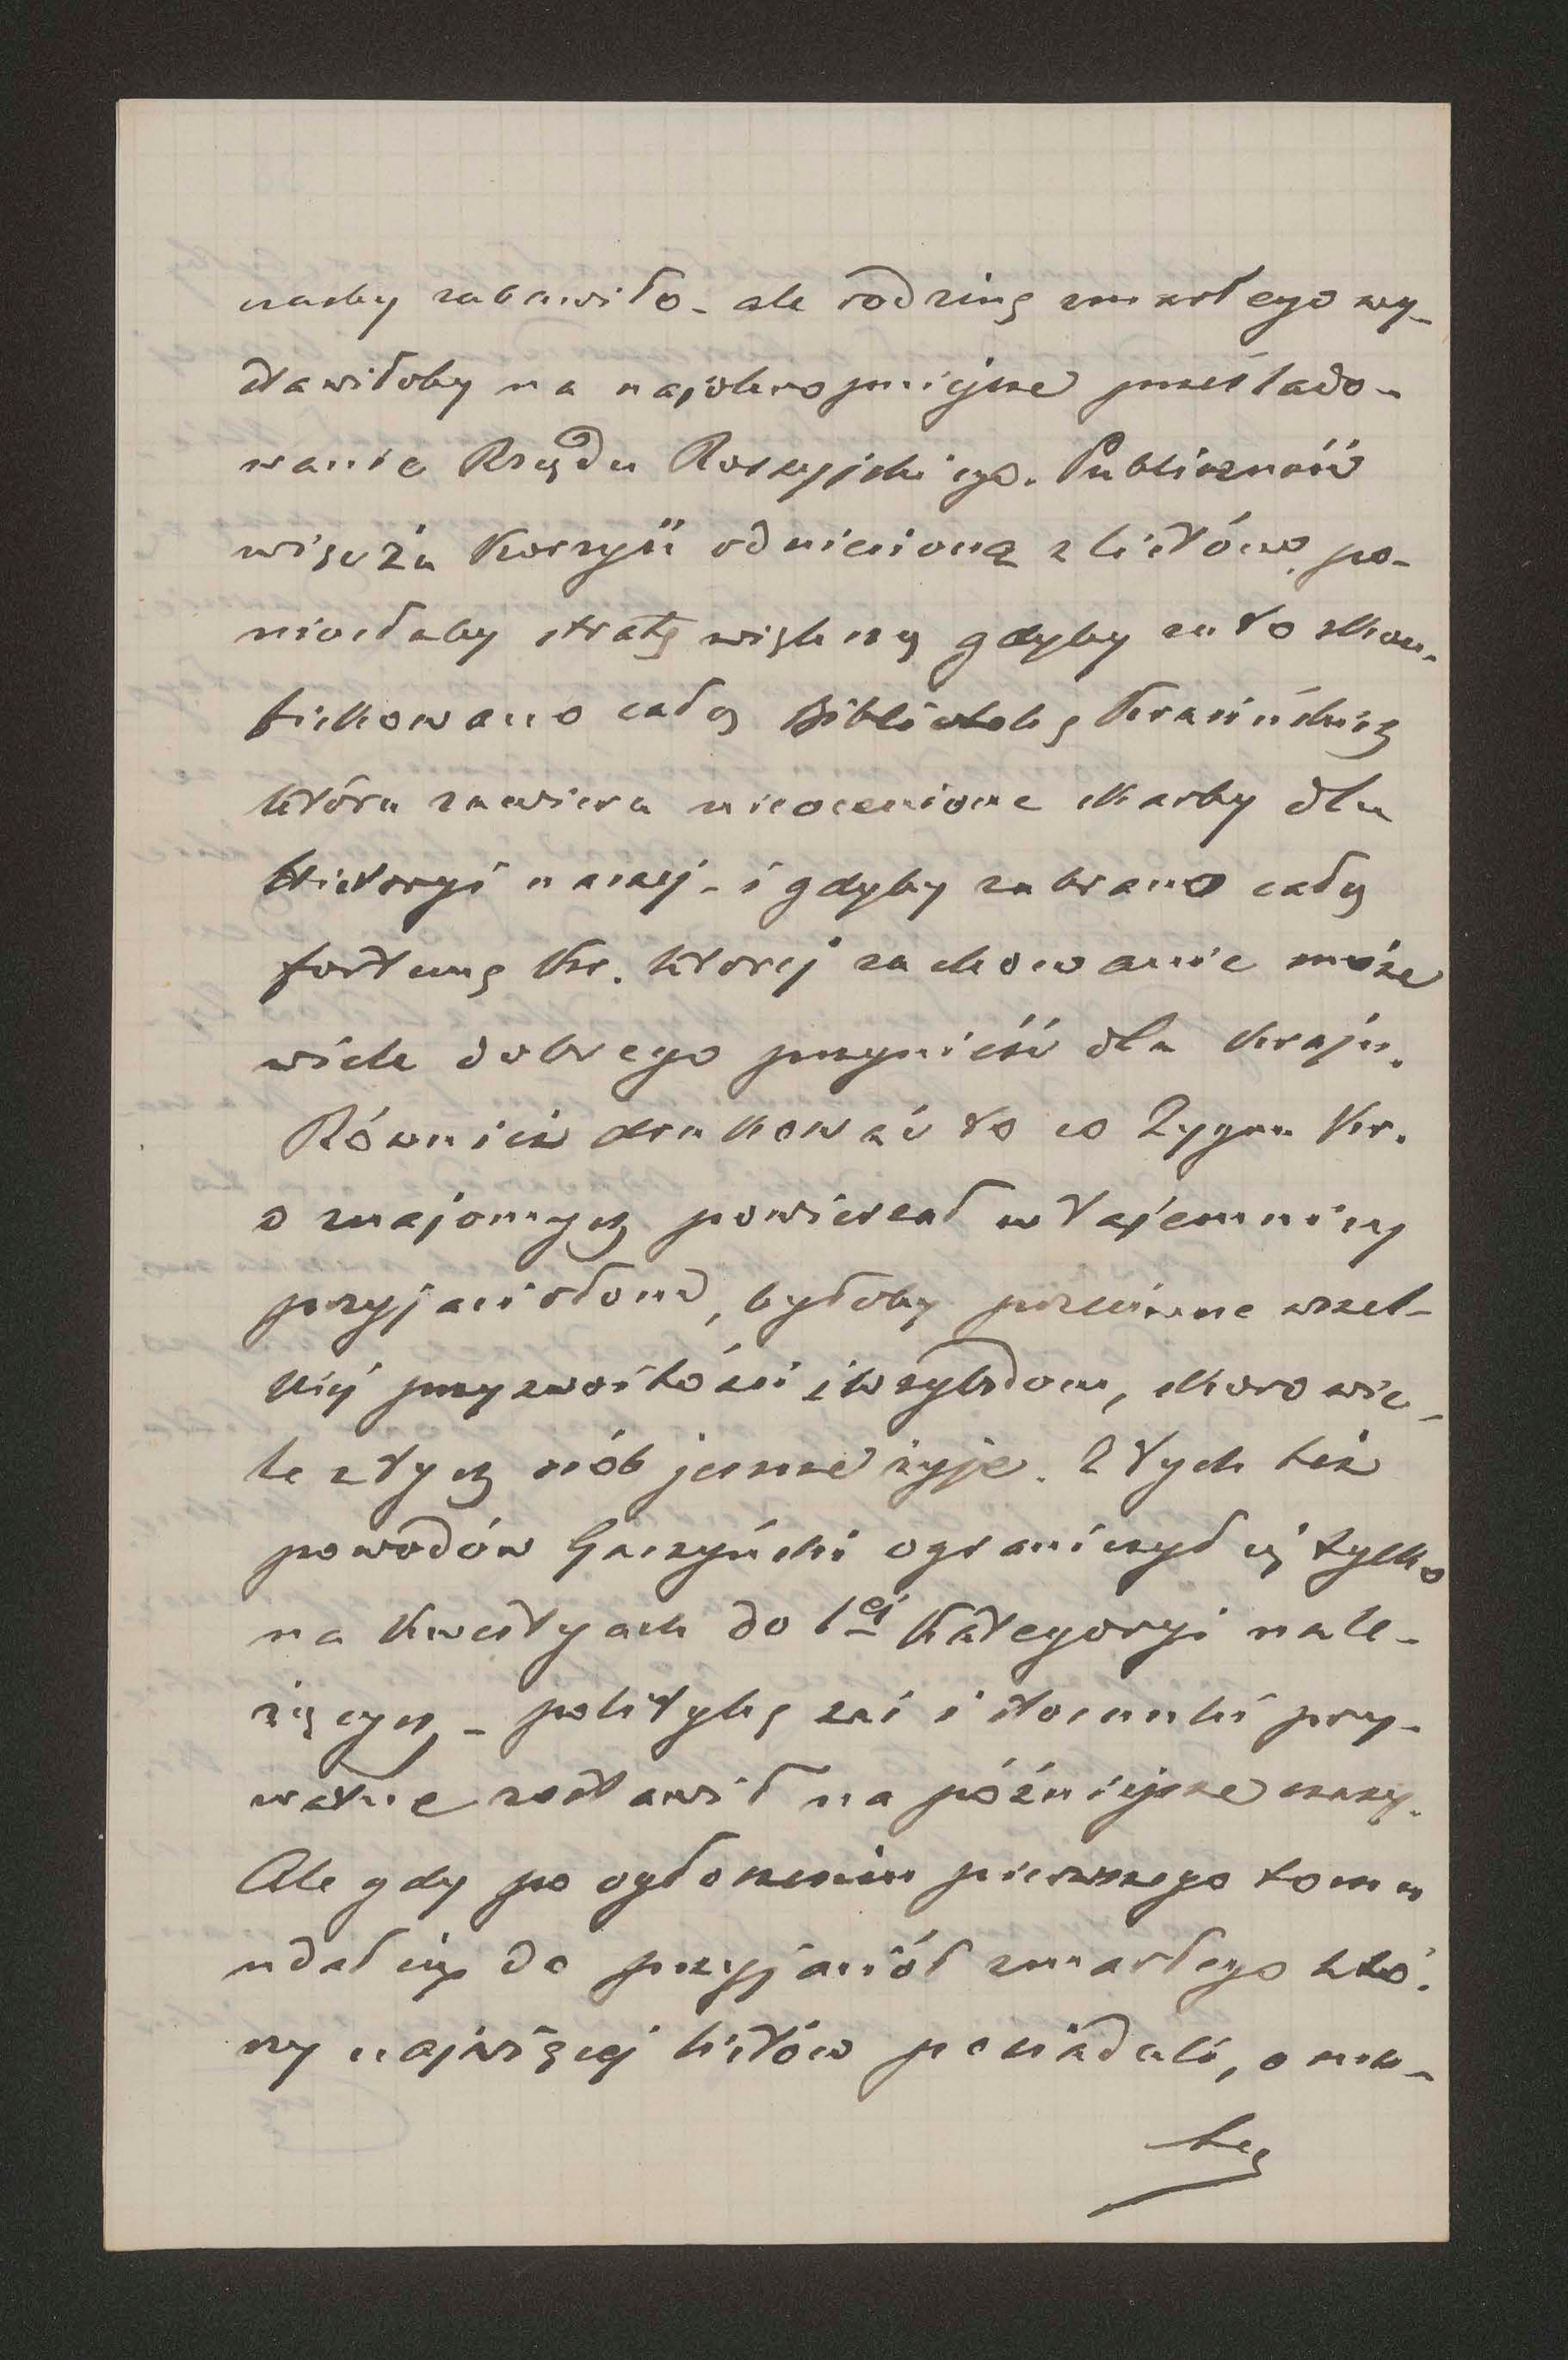 nasby zabawiło - ale rodzinę zmarłego wy-
stawiłoby na najokropniejsze prześlado-
wanie Rządu Rossyjskiego. Publiczność
więc za korzyść odniesioną z listów, po-
niosłaby stratę większą gdyby za to skon-
fiskowano całą Bibliotekę Krasińskich
która zawiera nieocenione skarby dla
historyi naszej - i gdyby zabrano całą
fortunę Kr. ktorej zachowanie może
wiele dobrego przynieść dla kraju.
Również drukować to co Zygm Kr.
o znajomych powierzał w tajemnicy
przyjaciołom, byłoby przeciwne wszel-
kiéj przyzwoitości i względom, skoro wie-
le z tych osób jeszcze żyje. Z tych też
powodów Gaszyński ograniczył się tylko
na kwestyach do 1éj kategoryi nale-
żących - politykę zaś i stosunki pry-
watne zostawił na późniejsze czasy.
Ale gdy po ogłoszeniu pierwszego tomu
udał się do przyjaciół zmarłego któ-
rzy najwięcej listów posiadali, o resz-
tę